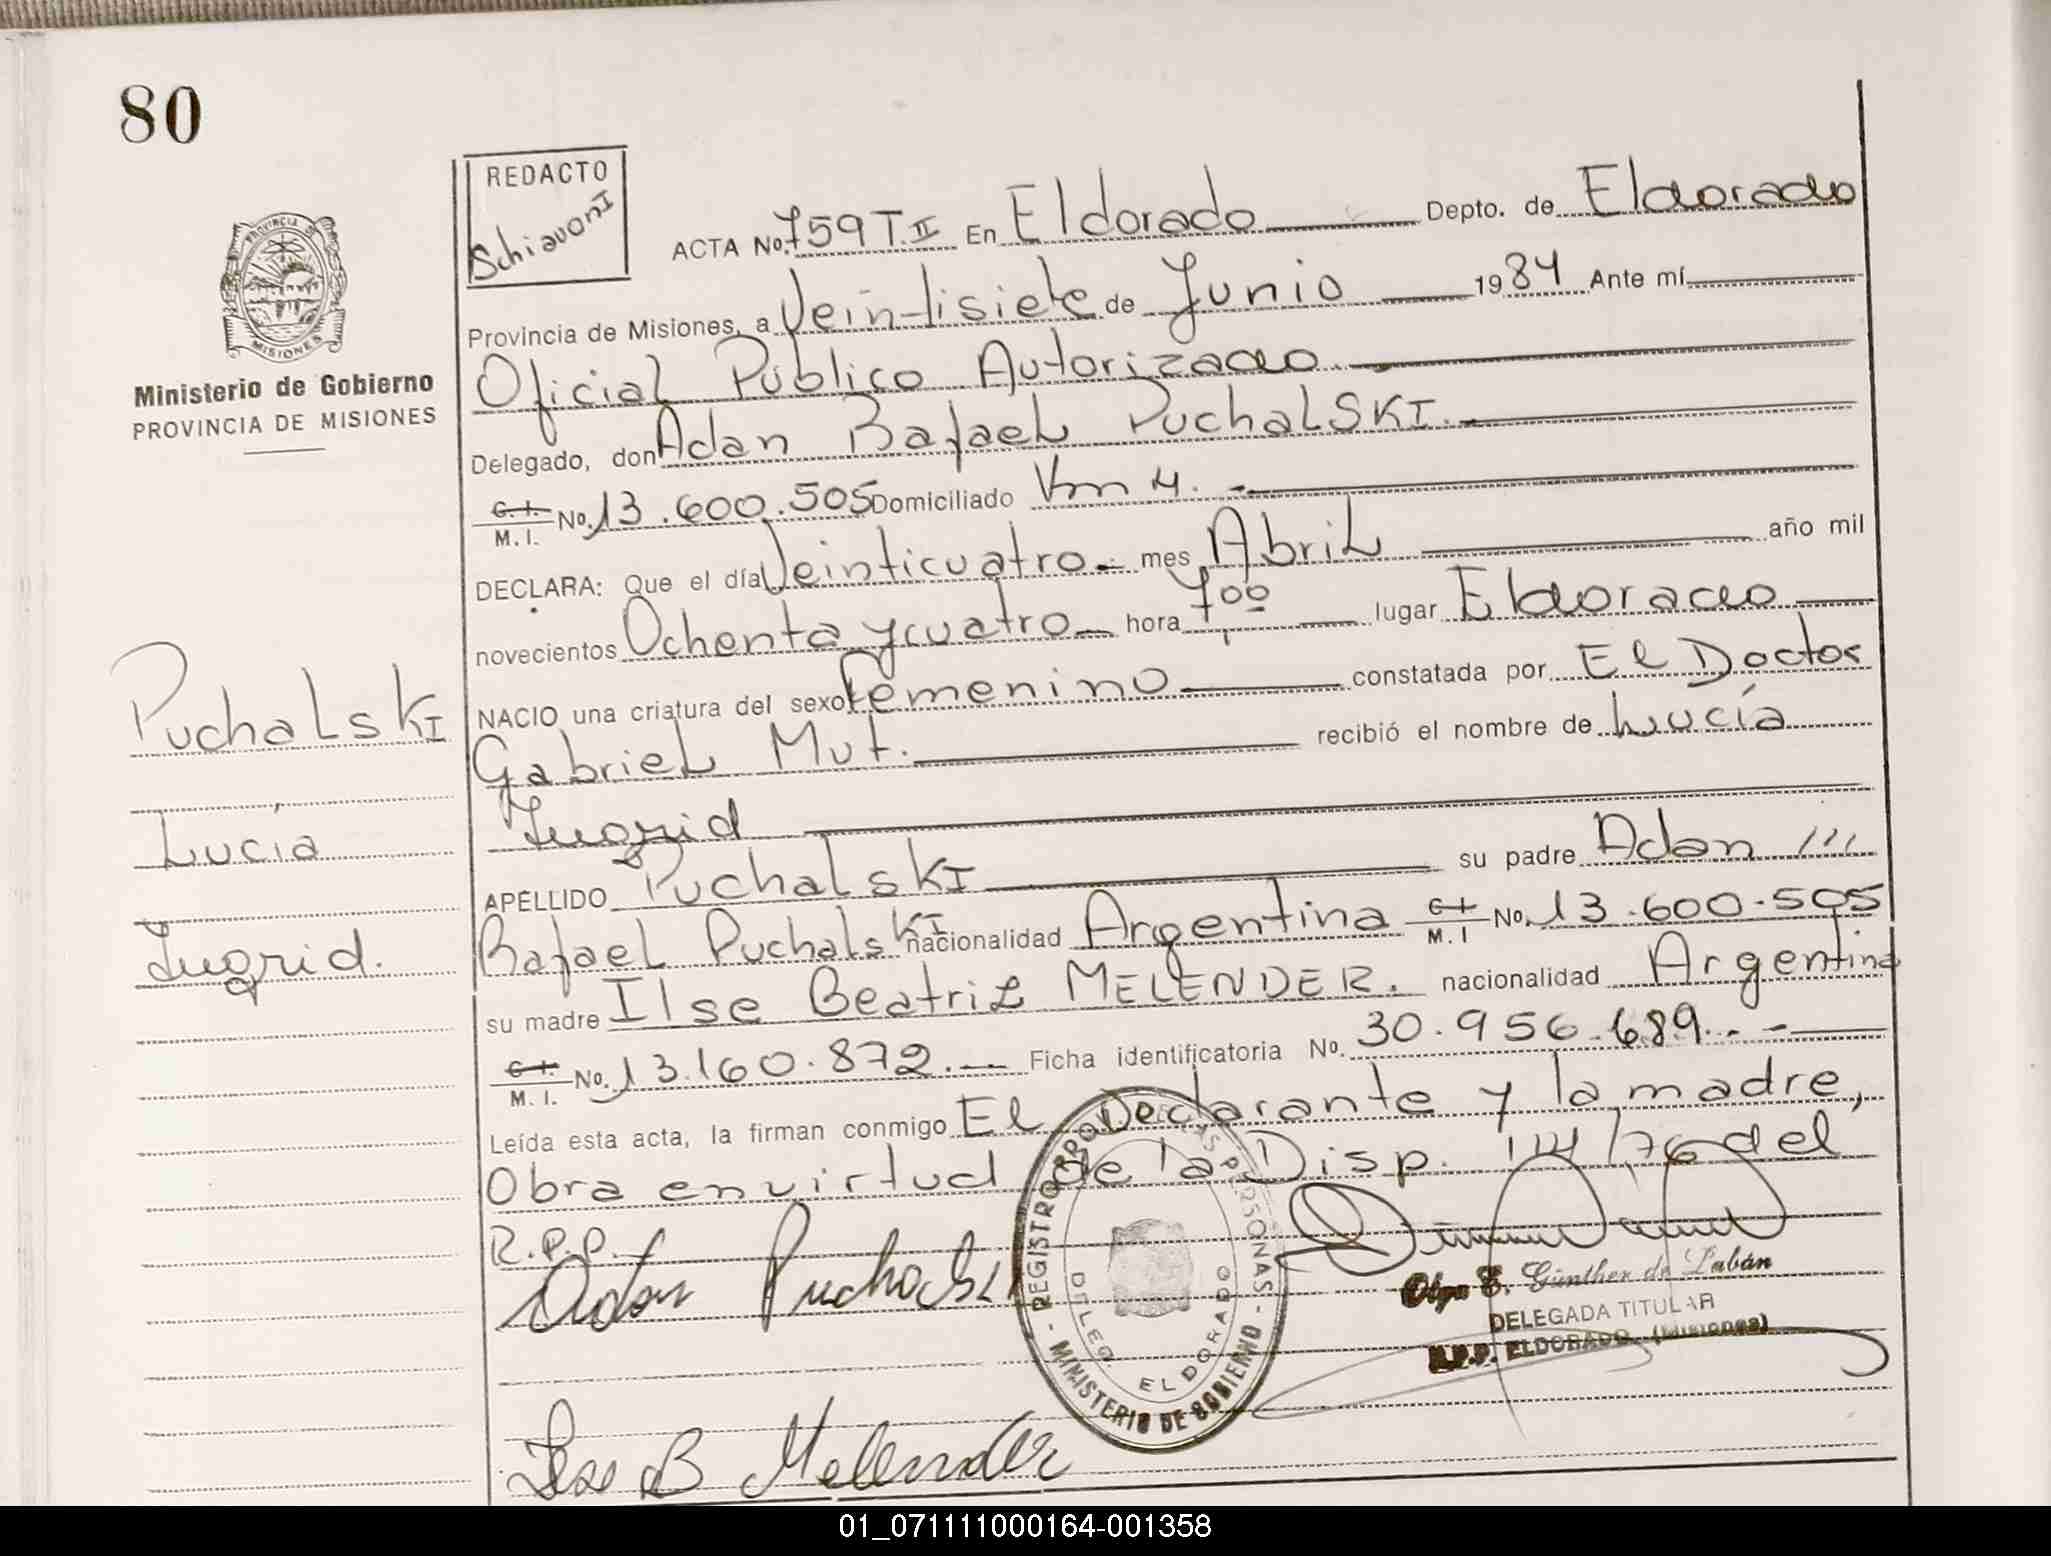 80
REDACTO
Schiavoni
PROVINCIA DE
MISIONES
Ministerio de Gobierno
PROVINCIA DE MISIONES
ACTA No. 759 T.II En Eldorado Depto. de Eldorado
Provincia de Misiones, a Veintisiete de Junio 1984 Ante mí
Oficial Público Autorizado
Delegado, don Adan Rafael PuchalSKI.
C.I. M.I. No. 13.600.505 Domiciliado Km 4.
DECLARA: Que el día Veinticuatro mes Abril año mil
novecientos Ochenta y cuatro hora 7,00 lugar Eldorado
NACIO una criatura del sexo Femenino constatada por El Doctor
Gabriel Mut. recibió el nombre de Lucía
Ingrid
APELLIDO PuchalsKI su padre Adan
Rafael PuchalsKI nacionalidad Argentina C.I. M.I No. 13.600.505
su madre Ilse Beatriz MELENDER. nacionalidad Argentina
C.I. M.I. No. 13.160.872. Ficha identificatoria No. 30.956.689.
Leída esta acta, la firman conmigo El Declarante y la madre,
Obra en virtud de la Disp. 114/76 del
R.P.P.
PuchalsKI
Lucía
Ingrid.
Adan Puchalski
REGISTRO PROV. DE LAS PERSONAS - MINISTERIO DE GOBIERNO -
DELEG. ELDORADO
Olga E. Günther de Labán
DELEGADA TITULAR
R.P.P. ELDORADO (Misiones)
Ilse B Melender
01_071111000164-001358